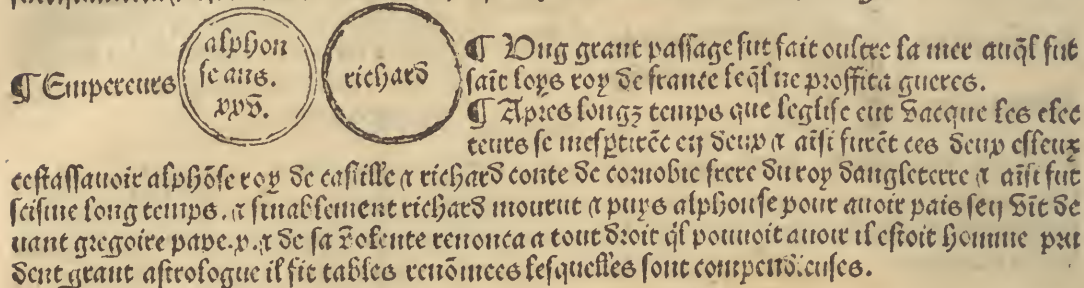 ¶ Empereurs
alphon
se ans.
xxv̄.
richard
¶ Ung grant passage fut fait oultre la mer auq̄l fut
sait loys roy de france leq̄l ne proffita gueres.
¶ Apres longz temps que leglise eut vacque les elec
teurs se en deux ⁊ aīsi furēt ces deux esleuz
cestassauoir alphōse roy de castille ⁊ richard conte de cornobie frere du roy dangleterre ⁊ aīsi fut
scisme long temps. ⁊ finablement richard mourut ⁊ puys alphonse pour auoir paix sen vīt de
uant gregoire pape .x. ⁊ de sa volente renonca a tout droit q̄l pouuoit auoir il estoit homme pru
dent grant astrologue il fit tables renōmees lesquelles sont compendieuses.